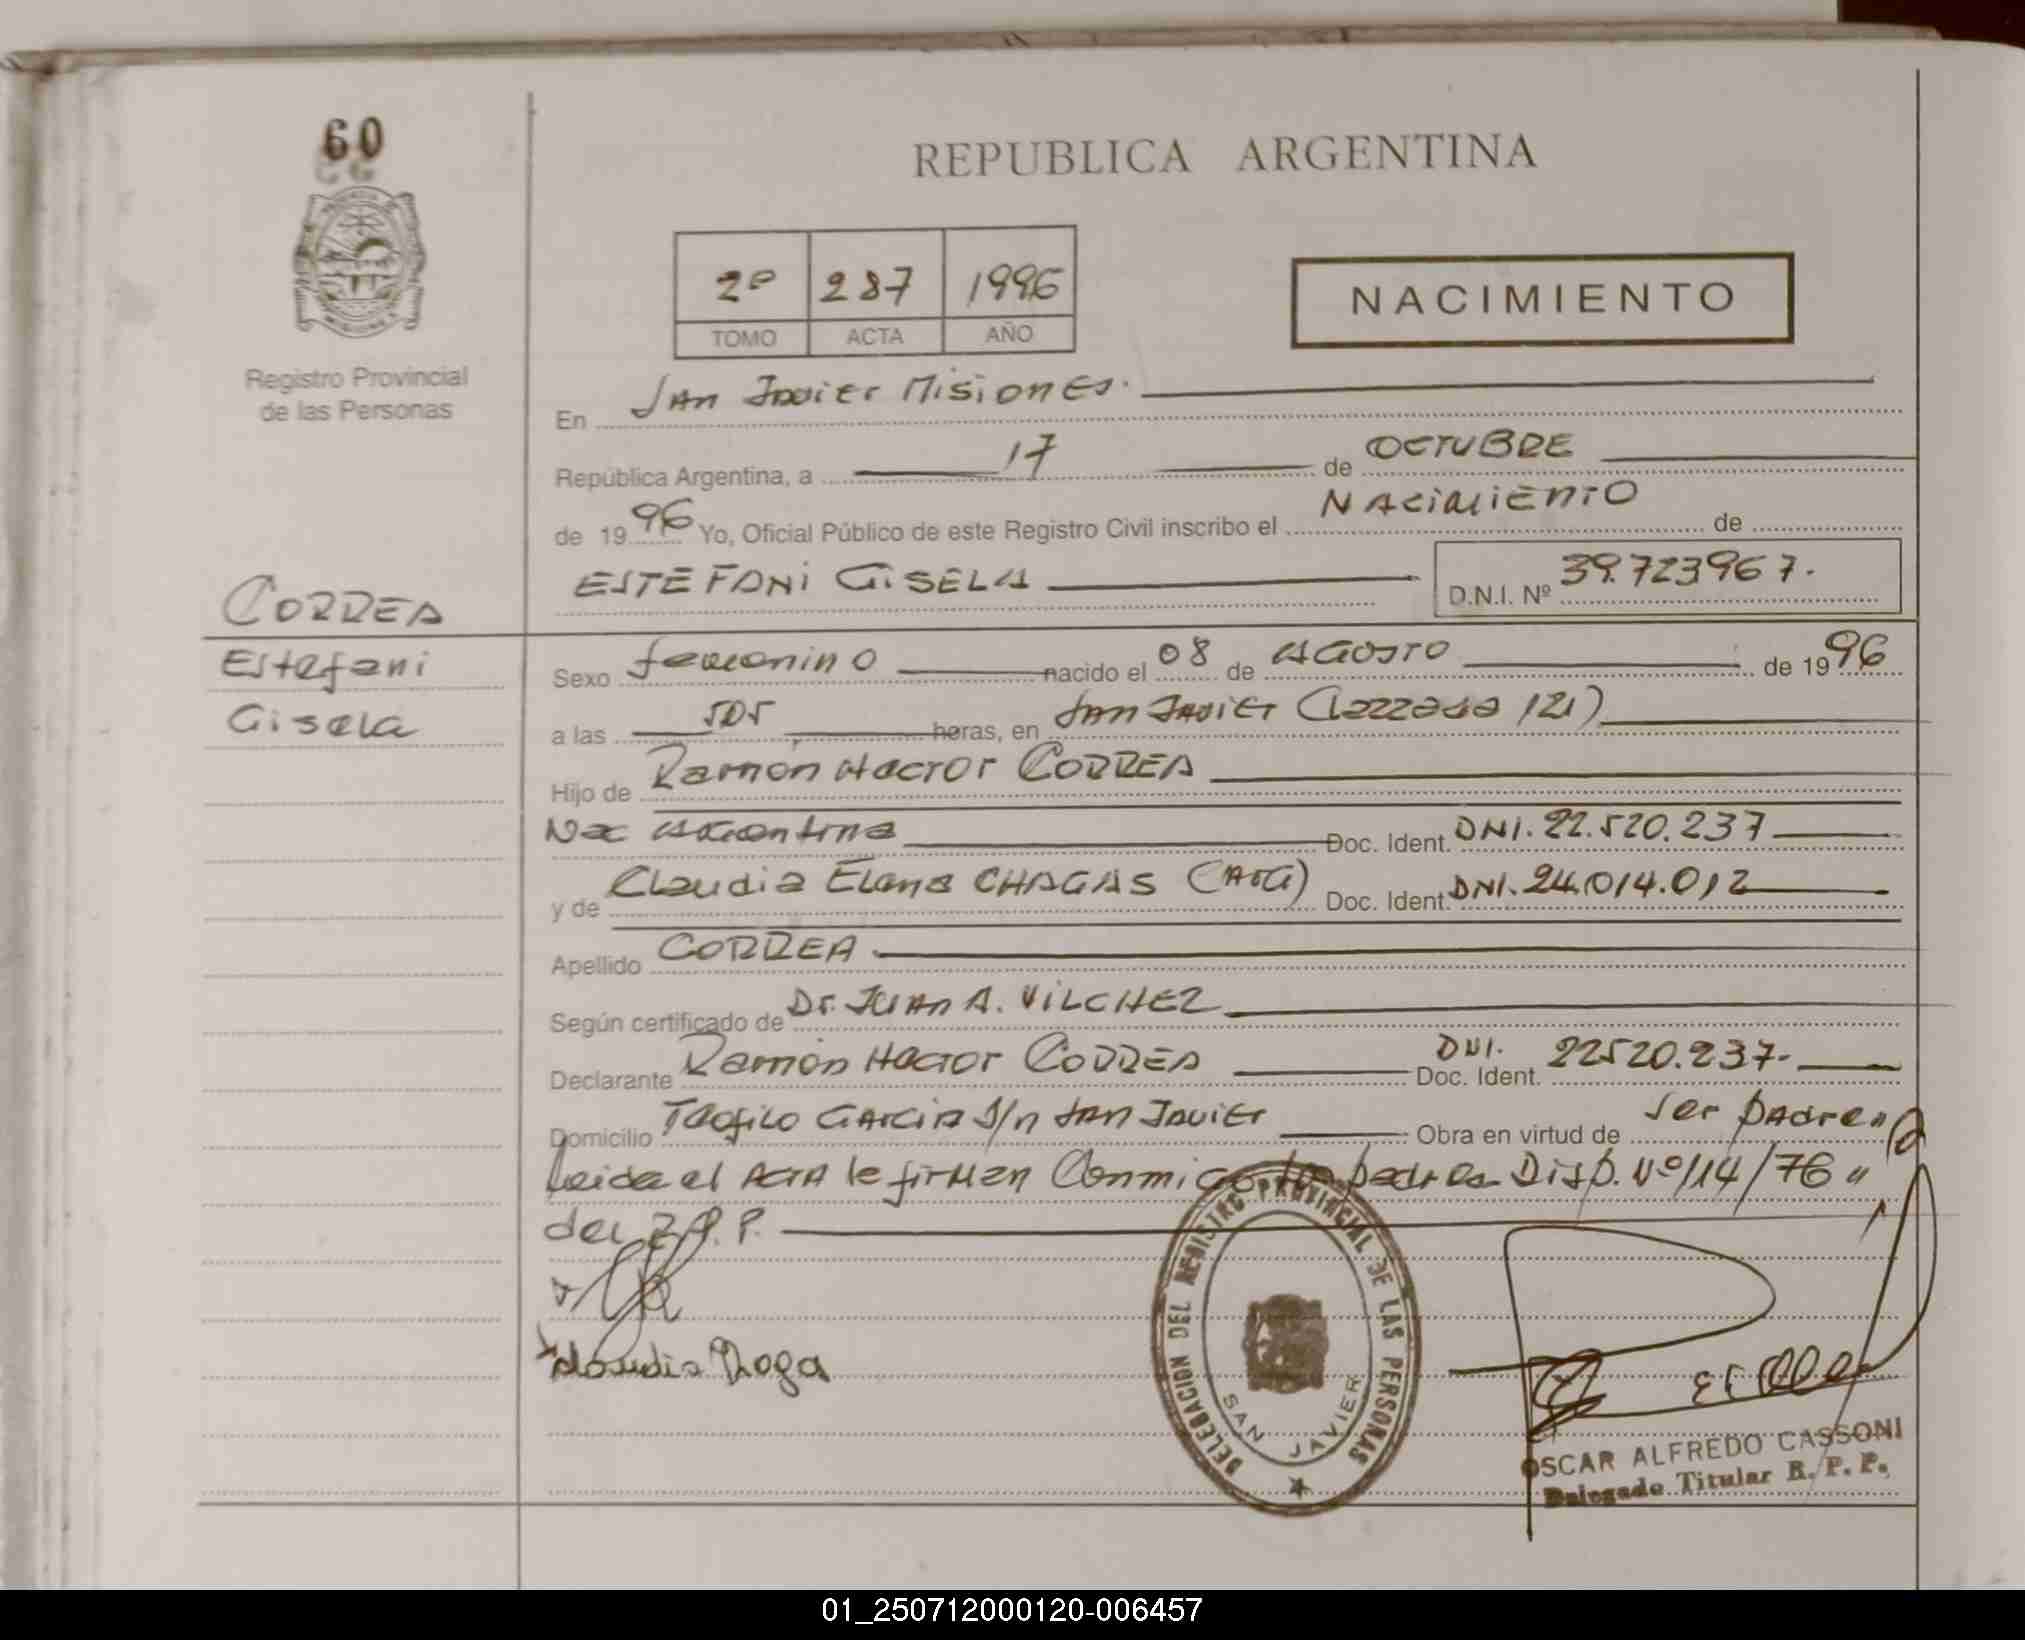 60
REPUBLICA ARGENTINA
2º 287 1996
TOMO ACTA AÑO
NACIMIENTO
Registro Provincial
de las Personas
En San Javier Misiones.
República Argentina, a 17 de OCTUBRE
de 1996 Yo, Oficial Público de este Registro Civil inscribo el NACIMIENTO de
ESTEFANI GISELA D.N.I. Nº 39.723967.
CORREA
Estefani
Gisela
Sexo femenino nacido el 08 de AGOSTO de 1996
a las 505 horas, en San Javier (121)
Hijo de Ramon Hector CORREA
Nac Argentina Doc. Ident. DNI. 22.520.237
y de Claudia Elena CHAGAS (ARG) Doc. Ident. DNI. 24.014.012
Apellido CORREA
Según certificado de Dr. JUAN A. VILCHEZ
Declarante Ramón Hector CORREA Doc. Ident. DNI. 22520.237.
Domicilio Teofilo GARCIA S/n San Javier Obra en virtud de ser padre
Leida el ACTA le firman Conmigo padres Disp. Nº 114/76
del R.P.P.
Claudia
DELEGACION DEL REGISTRO PROVINCIAL DE LAS PERSONAS
SAN JAVIER
OSCAR ALFREDO CASSONI
Delegado Titular R. P. P.
01_250712000120-006457